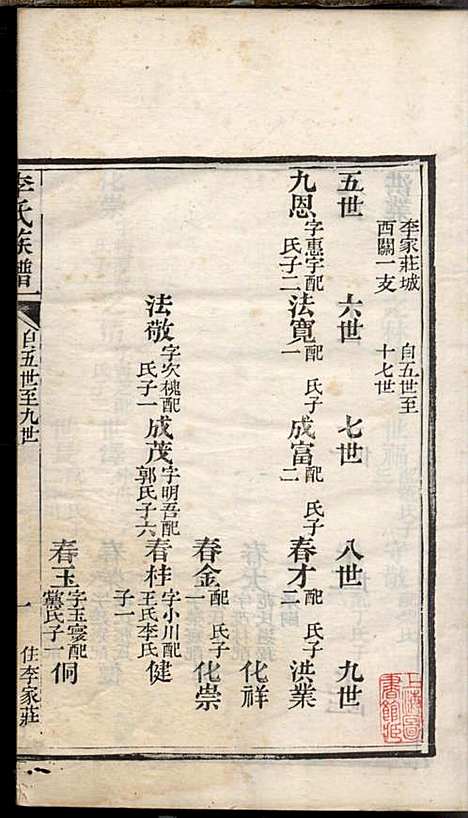 李家莊城西關一支 自五世至十七世
五世 六世 七世 八世 九世
九恩 字惠宇配 氏子二 法寬 配 氏子一 成富 配 氏子二 春才 配 氏子二 洪業
化祥
春金 配 氏子一 化崇
法敬 字次槐配 氏子一 成茂 字明吾配郭氏子六 春桂 字小川配王氏李氏子一 健
春玉 字玉寰配黨氏子一 侗
李氏族譜 自五世至九世 一 住李家莊
上海圖書館藏